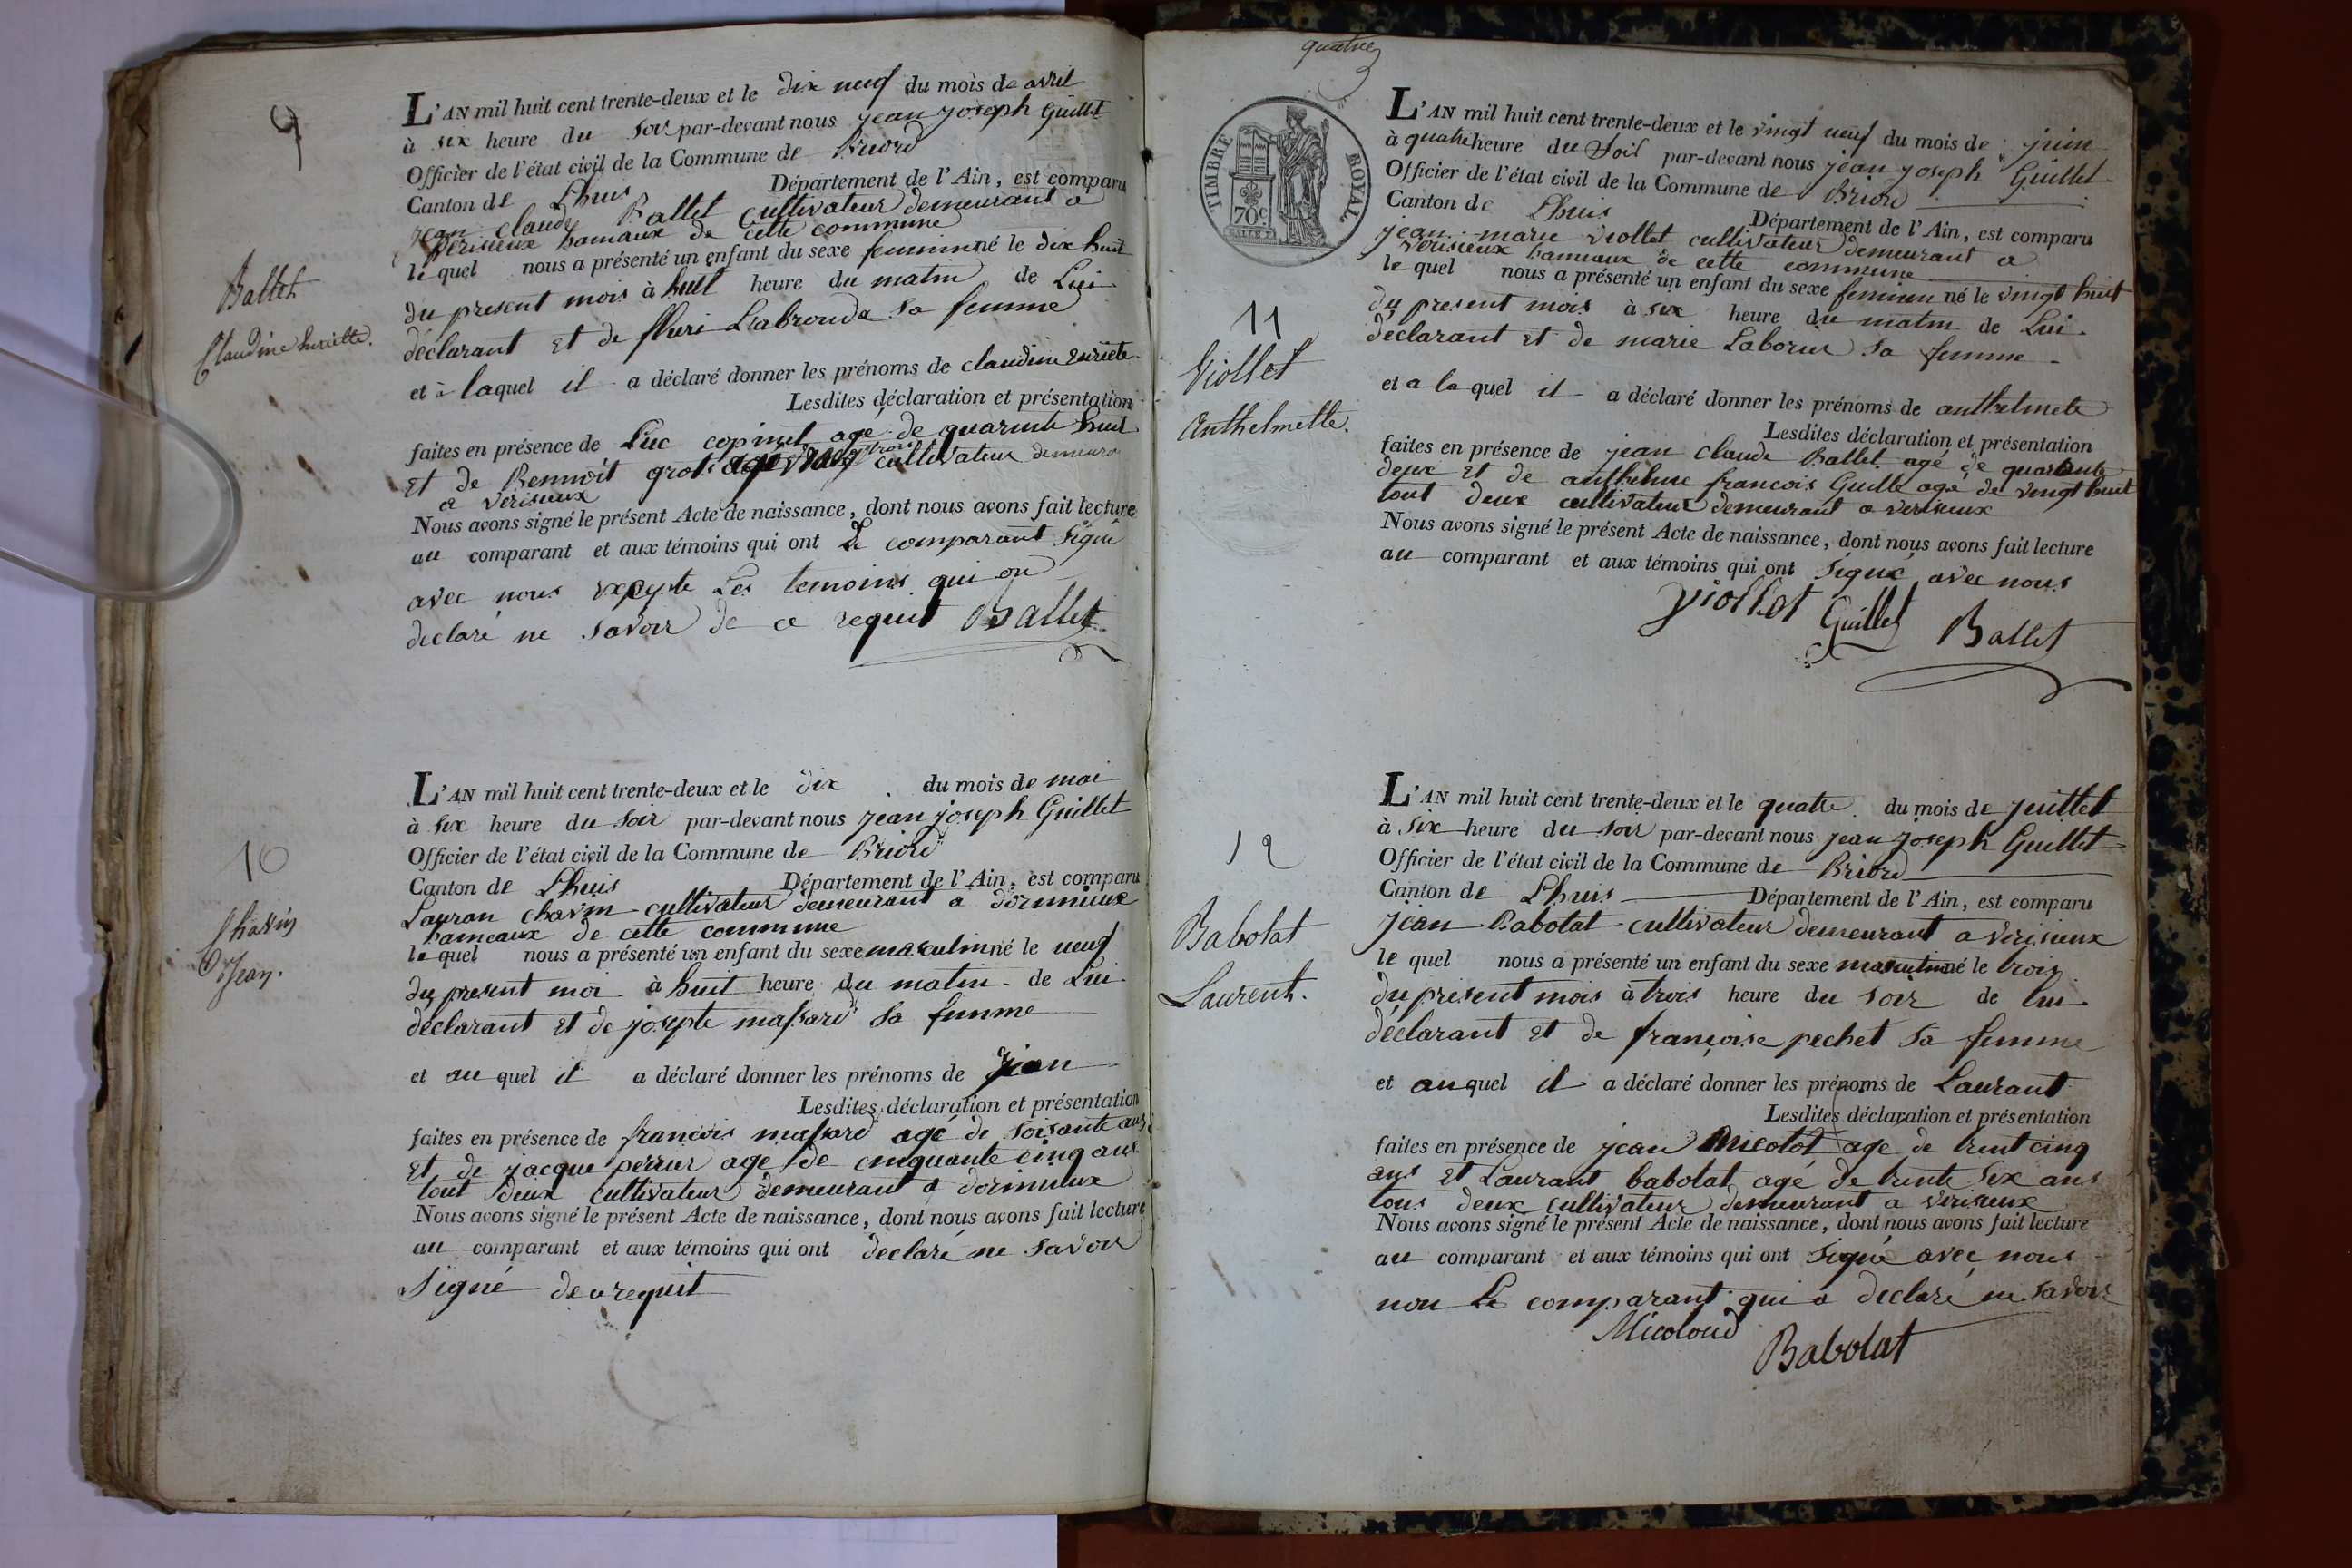 9
Ballet
Claudine huriette.
L'AN mil huit cent trente-deux et le dix neuf du mois de avril
à six heure du soir par-devant nous jean joseph Guillet
Officier de l'état civil de la Commune de Briord
Canton de Lhuis Département de l'Ain, est comparu
jean claude Ballet cultivateur demeurant a
verisieux hamaux de cette commune
le quel nous a présenté un enfant du sexe feminin né le dix huit
du present mois à huit heure du matin de Lui
déclarant et de fluri Labronde sa femme
et à laquel il a déclaré donner les prénoms de claudine enriete
Lesdites déclaration et présentation
faites en présence de Luc copinet agé de quarente huit
et de Bennoit gros cultivateur demeura
a verisieux
Nous avons signé le présent Acte de naissance, dont nous avons fait lecture
au comparant et aux témoins qui ont Le comparant signé
avec nous excepte Les temoins qui on
declaré ne savoir de ce requit Ballet
10
Chavin
Jean.
L'AN mil huit cent trente-deux et le dix du mois de mai
à six heure du soir par-devant nous jean joseph Guillet
Officier de l'état civil de la Commune de Briord
Canton de Lhuis Département de l'Ain, est comparu
Lauran chavin cultivateur demeurant a dornieux
hameaux de cette commune
le quel nous a présenté un enfant du sexe masculin né le neuf
du present moi à huit heure du matin de Lui
déclarant et de josepte massard sa femme
et au quel il a déclaré donner les prénoms de jean
Lesdites déclaration et présentation
faites en présence de francois massard agé de soisante ans
et de jacque perrier age de cinquante cinq ans
tout deux cultivateur demeurant a
Nous avons signé le présent Acte de naissance, dont nous avons fait lecture
au comparant et aux témoins qui ont declaré ne savoir
signé de ce requit
quatre
TIMBRE ROYAL
70c
11
Viollet
Anthelmette.
L'AN mil huit cent trente-deux et le vingt neuf du mois de juin
à quatre heure du soir par-devant nous jean joseph Guillet
Officier de l'état civil de la Commune de Briord
Canton de Lhuis Département de l'Ain, est comparu
jean marie viollet cultivateur demeurant a
verisieux hameaux de cette commune
le quel nous a présenté un enfant du sexe feminin né le vingt huit
du present mois à six heure du matin de Lui
déclarant et de marie Laborier sa femme
et a la quel il a déclaré donner les prénoms de anthelmete
Lesdites déclaration et présentation
faites en présence de jean claude Ballet agé de quarante
deux et de anthelme francois Guille agé de vingt huit
tout deux cultivateur demeurant a verisieux
Nous avons signé le présent Acte de naissance, dont nous avons fait lecture
au comparant et aux témoins qui ont signé avec nous
Viollet Guillet Ballet
12
Babolat
Laurent.
L'AN mil huit cent trente-deux et le quatre du mois de juillet
à six heure du soir par-devant nous jean joseph Guillet
Officier de l'état civil de la Commune de Briord
Canton de Lhuis Département de l'Ain, est comparu
jean Babolat cultivateur demeurant a verisieux
le quel nous a présenté un enfant du sexe masculin né le trois
du present mois à trois heure du soir de lui
déclarant et de françoise pechet sa femme
et au quel il a déclaré donner les prénoms de Laurant
Lesdites déclaration et présentation
faites en présence de jean Micolot age de trent cinq
ans et Laurant babolat agé de trente six ans
tous deux cultivateur demeurant a verisieux
Nous avons signé le présent Acte de naissance, dont nous avons fait lecture
au comparant et aux témoins qui ont signé avec nous
non Le comparant qui a declaré ne savoir
Micoloud Babolat